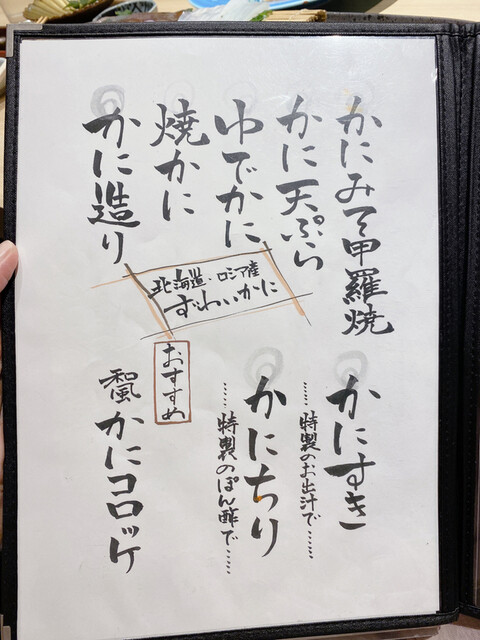 かにみそ甲羅焼
かに天ぷら
ゆでかに
焼かに
かに造り
北海道・ロシア産
ずわいかに
かにすき
……特製のお出汁で……
かにちり
……特製のぽん酢で……
おすすめ
和風かにコロッケ